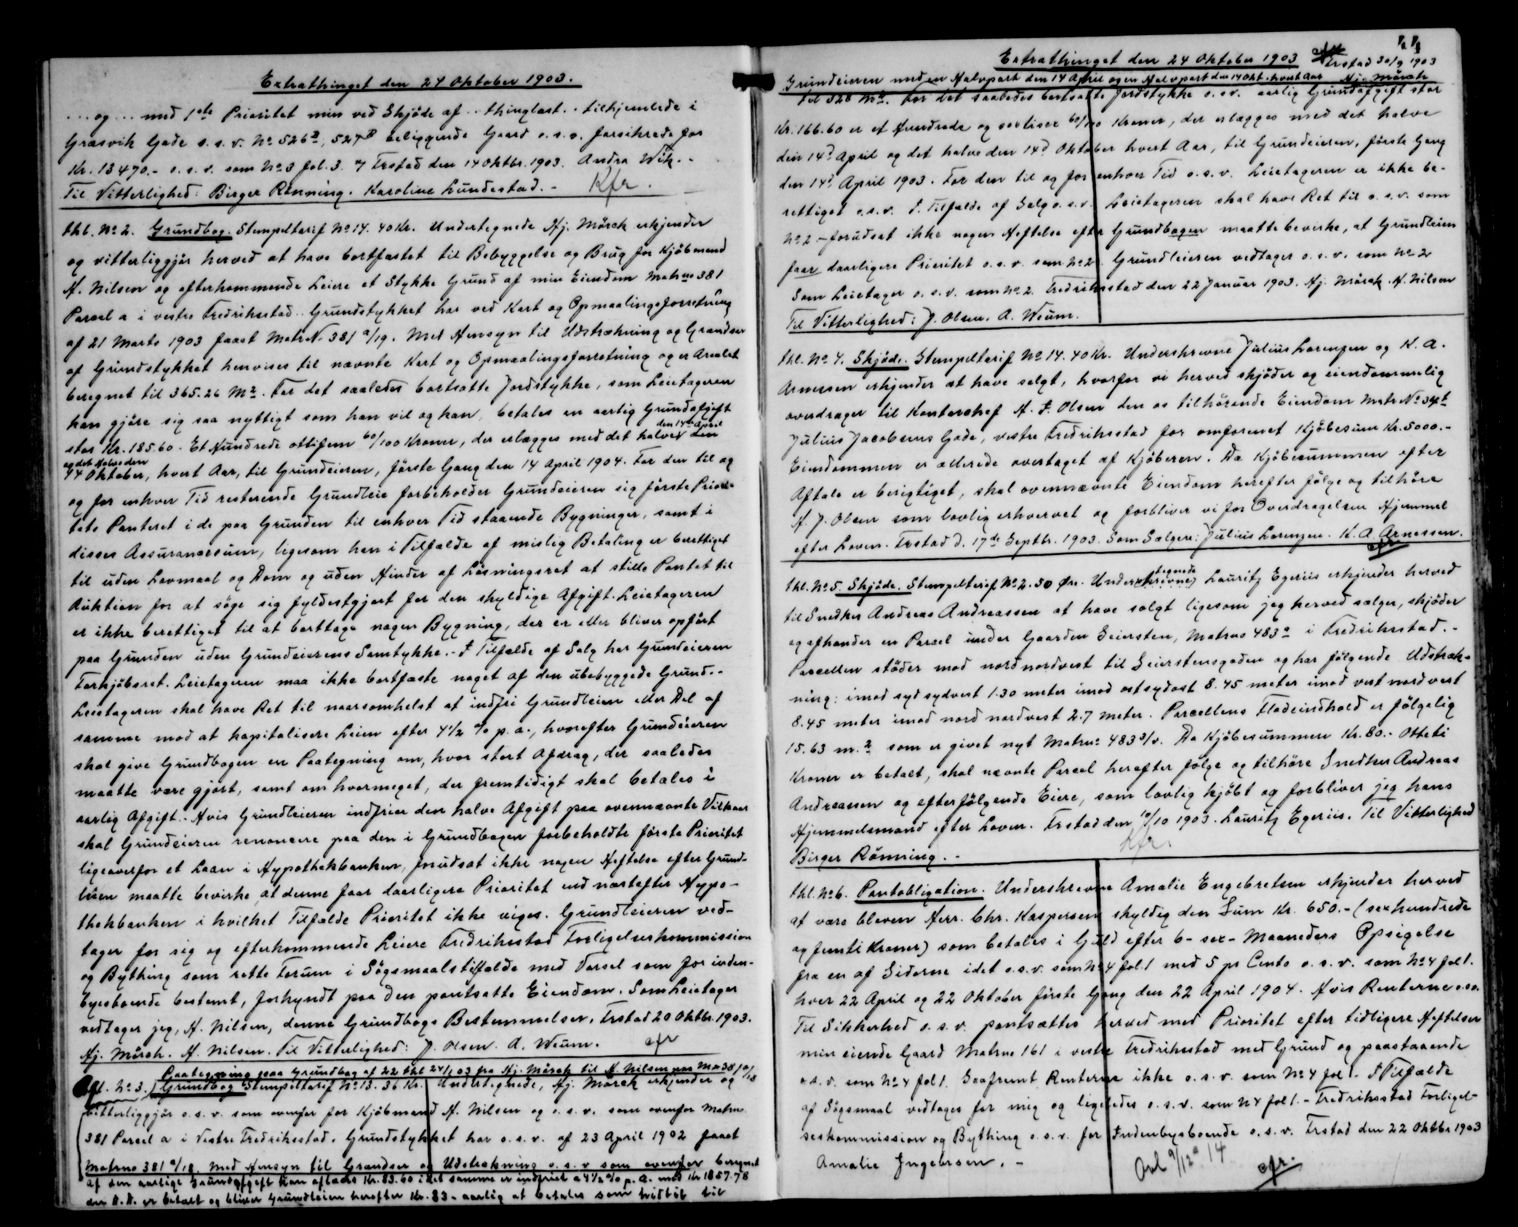 Extrathinget den 24 Oktober 1903.
... og ... med 1ste Prioritet min ved Skjöde af .. thinglæst .. tilhjemlede i
Græsvik Gade s.s.v. No 526a, 527b beliggende Gaard o.s.v. forsikrede for
Kr. 13470.- o.s.v. som No 3 fol. 3. Frstad den 14 Oktbr. 1903. Andra Wik.-
Til Vitterlighed: Birger Rönning. Karoline Lundestad.-
thl. No 2. Grundbog. Stempeltarif No 14. 40 Kr. Undertegnede Hj. Mörch erkjender
og vitterliggjör herved at have bortfæstet til Bebyggelse og Brug for Kjöbmand
H. Nilsen og efterkommende Leiere et Stykke Grund af min Eiendom Matrno 381
Parcel a i vestre Fredrikstad. Grundstykket har ved Kart og Opmaalingsforretning
af 21 Marts 1903 faaet MatrN. 381 a/19. Med Hensyn til Udstrækning og Grændser
af Grundstykket henvises til nævnte Kart og Opmaalingsforretning og er Arealet
beregnet til 365.26 M2. For det saaledes bortsatte Jordstykke, som Leietageren
kan gjöre sig saa nyttigt som han vil og kan, betales en aarlig Grundafgift
stor Kr. 185.60. Et Hundrede ottifem 60/100 Kroner, der erlægges med det halve den 14de April
og det Halve den 14 Oktober, hvert Aar, til Grundeieren, förste Gang den 14 April 1904. For den til og
og for enhver Tid resterende Grundleie forbeholder Grundeieren sig förste Priori-
tets Panteret i de paa Grunden til enhver Tid staaende Bygninger, samt i
disses Assurancesum, ligesom han i Tilfælde af mislig Betaling er berettiget
til uden Lovmaal og Dom og uden Hinder af Lösningsret at stille Pantet til
Auktion for at söge sig fyldestgjort for den skyldige Afgift. Leietageren
er ikke berettiget til at borttage nogen Bygning, der er eller bliver opfört
paa Grunden uden Grundeierens Samtykke.- I Tilfælde af Salg har Grundeieren
Forkjöbsret. Leietageren maa ikke bortfæste noget af den ubebyggede Grund.-
Leietageren skal have Ret til naarsomhelst at indfri Grundleien eller Del af
samme mod at kapitalisere Leien efter 4½ % p.a., hvorefter Grundeieren
skal give Grundbogen en Paategning om, hvor stort Afdrag, der saaledes
maatte være gjört, samt om hvormeget, der fremtidigt skal betales i
aarlig Afgift. Hvis Grundleieren indfrier den halve Afgift paa ovennævnte Vilkaar
skal Grundeieren renoncere paa den i Grundbogen forbeholdte förste Prioritet
ligeoverfor et Laan i Hypothekbanken, forudsat ikke nogen Heftelse efter Grund-
leien maatte bevirke, at denne faar daarligere Prioritet end næstefter Hypo-
thekbanken i hvilket Tilfælde Prioritet ikke viges. Grundleieren ved-
tager for sig og efterkommende Leiere Fredrikstad Forligelseskommission
og Bything som rette Forum i Sögsmaalstilfælde med Varsel som for inden-
byesboende bestemt, forkyndt paa den pantsatte Eiendom. Som Leietager
vedtager jeg, H. Nilsen, denne Grundbogs Bestemmelser. Frstad 20 Oktbr. 1903.
Hj. Mörch. H. Nilsen. Til Vitterlighed: J. Olsen. A. Weum.
Paategning paa Grundbog af 22 thl 24/1 03 fra Hj. Mörch til H. Nilsen paa Mno 381a/18
thl. No. 3. Grundbog Stempeltarif No 13. 36 Kr. Undertegnede, Hj. Mörch erkjender og
vitterliggjör o.s.v. som ovenfor for Kjöbmand H. Nilsen og o.s.v. som ovenfor Matrno
381 Parcel a i Vestre Fredrikstad. Grundstykket har o.s.v. af 23 April 1902 faaet
Matrno 381 a/18. Med Hensyn til Grændser og Udstrækning o.s.v. som ovenfor beregnet
af den aarlige Grundafgift kan aflades Kr. 83.60 idet samme er indfriet a 4½ % p.a. med Kr 1857.78
der d.D. er betalt og bliver Grundleien herefter Kr. 83- aarlig at betales som hidtil til
Extrathinget den 24 Oktober 1903
Frstad 30/9 1903
Grundeieren med en Halvpart den 14 April og en Halvpart den 14 Okt. hvert Aar Hj. Mörch
til 328 M2. For det saaledes bortsatte Jordstykke o.s.v. aarlig Grundafgift stor
Kr. 166.60 er et Hundrede og sextisex 60/100 Kroner, der erlægges med det halve
den 14de April og det halve den 14de Oktober hvert Aar, til Grundeieren, förste Gang
den 14de April 1903. For den til og for enhver Tid o.s.v. Leietageren er ikke be-
rettiget o.s.v. I Tilfælde af Salg o.s.v. Leietageren skal have Ret til o.s.v. som
No 2 - forudsat ikke nogen Heftelse efter Grundbogen maatte bevirke, at Grundleien
faar daarligere Prioritet o.s.v. som No 2. Grundleieren vedtager o.s.v. som No 2
Som Leietager o.s.v. som No 2. Fredrikstad den 22 Januar 1903. Hj. Mörch. H. Nilsen
Til Vitterlighed: J. Olsen. A. Weum.
thl. No 4. Skjöde. Stempeltarif No 14. 40 Kr. Underskrevne Julius Lorenzen og K. A.
Arnesen erkjender at have solgt, hvorfor vi herved skjöder og eiendommelig
overdrager til Kontorchef H. J. Olsen den os tilhörende Eiendom Matr No 34b
Julius Jacobsens Gade, vestre Fredrikstad for omforenet Kjöbesum Kr. 5000.-
Eiendommen er allerede overtaget af Kjöberen. Da Kjöbesummen efter
Aftale er berigtiget, skal ovennævnte Eiendom herefter fölge og tilhöre
H. J. Olsen som lovlig erhvervet og forbliver vi for Overdragelsen Hjemmel
efter Loven. Frstad d. 17de Septbr. 1903. Som Sælgere: Julius Lorenzen. K. A. Arnessen.
thl. No 5. Skjöde. Stempeltarif No 2. 50 Öre. Undertegnede Lauritz Egeriis erkjender herved
til Snedker Andreas Andreassen at have solgt ligesom jeg herved sælger, skjöder
og afhænder en Parcel under Gaarden Seiersten, Matrno 483a i Fredrikstad.-
Parcellen stöder mod nordnordvest til Seierstensgaden og har fölgende Udstræk-
ning: imod sydsydvest 1.30 meter imod ostsydost 8.45 meter imod vestnordvest
8.45 meter imod nordnordvest 2.7 meter. Parcellens Fladeindhold er fölgelig
15.63 m.2 som er givet nyt Matrno 483a/v. Da Kjöbesummen Kr. 80.- Otteti
Kroner er betalt, skal nævnte Parcel herefter fölge og tilhöre Snedker Andreas
Andreasen og efterfölgende Eiere, som lovlig kjöbt og forbliver jeg hans
Hjemmelsmand efter Loven. Frstad den 10/10 1903. Lauritz Egeriis. Til Vitterlighed
Birger Rönning.-
thl. No 6. Pantobligation. Underskrevne Amalie Engebretsen erkjender herved
at være bleven Herr. Chr. Kaspersen skyldig den Sum Kr. 650.- (sexhundrede
og femti Kroner) som betales i Guld efter 6- sex- Maaneders Opsigelse
fra en af Siderne idet o.s.v. som No 4 fol 1 med 5 pr Cento o.s.v. som No 4 fol 1.
hver 22 April og 22 Oktober förste Gang den 22 April 1904. Hvis Renterne o.s.v.
Til Sikkerhed o.s.v. pantsættes herved med Prioritet efter tidligere Heftelser
min eiende Gaard Matrno 161 i vestre Fredrikstad med Grund og paastaaende
o.s.v. som No 4 fol 1. Saafremt Renterne ikke o.s.v. som No 4 fol 1. I Tilfælde
af Sögsmaal vedtages for mig og ligeledes o.s.v. som No 4 fol 1.- Fredrikstad Forligel-
seskommission og Bything o.s.v. for Indenbysboende o.s.v. Frstad den 22 Oktbr 1903
Amalie Ingebersen.-